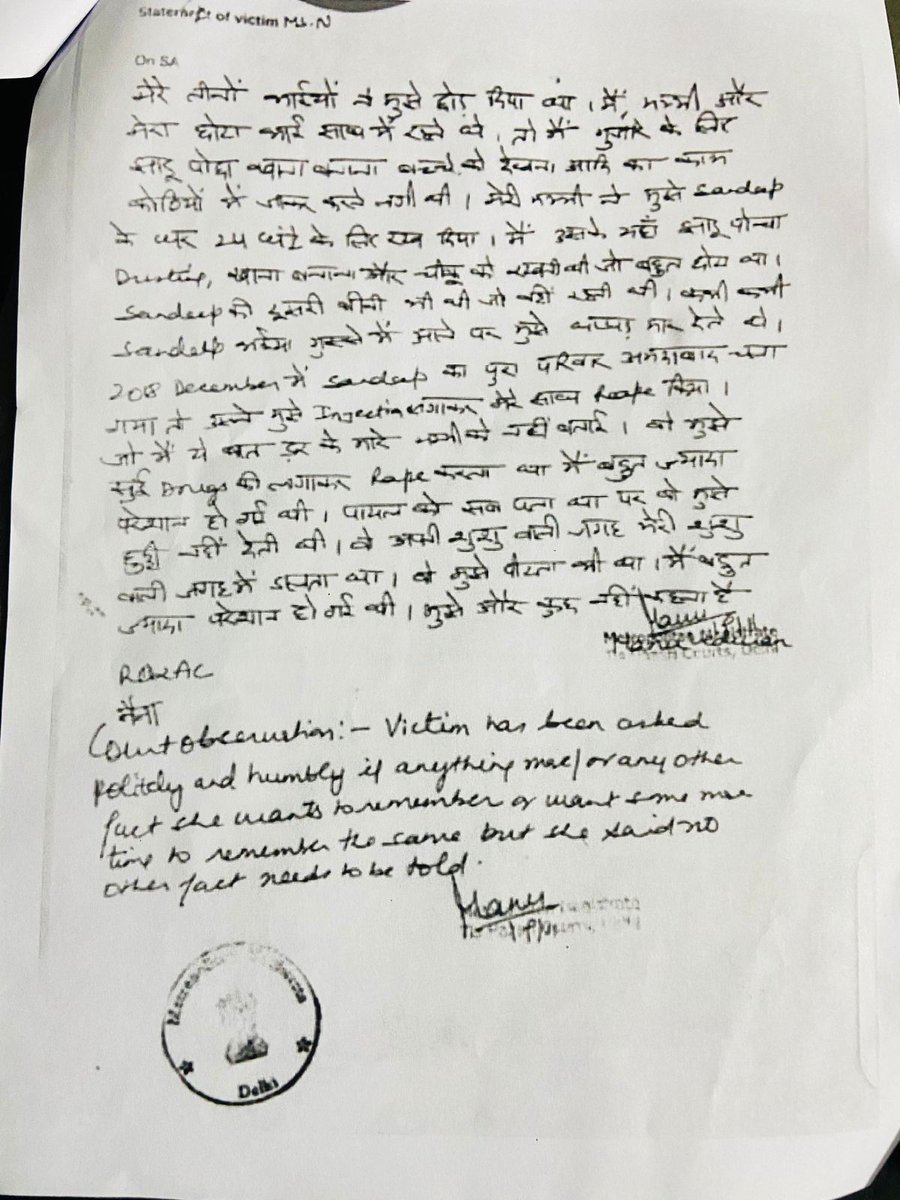 Statement of victim Ms. N
On SA
मेरे तीनों भाईयों ने मुझे छोड़ दिया था। मैं, मम्मी और
मेरा छोटा भाई साथ में रहते थे। तो मैं गुजारे के लिए
झाड़ू पोछा खाना बनाना बच्चे को देखना आदि का काम
कोठियों में जाकर करने लगी थी। मेरी मम्मी ने मुझे Sandeep
के घर 24 घंटे के लिए रख दिया। मैं उसके यहाँ झाड़ू पोन्चा
Dusting, खाना बनाना और को रखती थी जो बहुत छोटा था।
Sandeep की दूसरी बीवी भी थी जो वहीं रहती थी। कभी कभी
Sandeep भईया गुस्से में आने पर मुझे थप्पड़ मार देते थे।
2018 December में Sandeep का पुरा परिवार अहमदाबाद चला
गया तो उसने मुझे Injection लगाकर मेरे साथ Rape किया।
जो मैं ये बात डर के मारे मम्मी को नहीं बताई। वो मुझे
सुई Drugs की लगाकर Rape करता था मैं बहुत ज्यादा
परेशान हो गई थी। पायल को सब पता था पर वो मुझे
छुट्टी नहीं देती थी। वो अपनी शुशु वाली जगह मेरी शुशु
वाली जगह में डालता था। वो मुझे पीटता भी था। मैं बहुत
ज्यादा परेशान हो गई थी। मुझे और कुछ नहीं कहना है
RO&AC
नैना
Court obserustion:- Victim has been asked
politely and humbly if anything more/or any other
fact she wants to remember or want some more
time to remember the same but she said no
other fact needs to be told.
Delhi